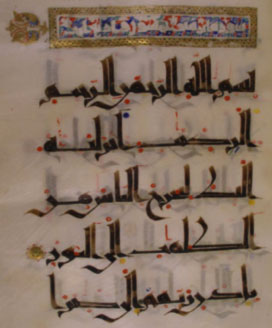 بسم الله الرحمن الرحيم
الر كتب انزلنه
اليك لتخرج الناس من
الظلمت الى النور
باذن ربهم الى صرط